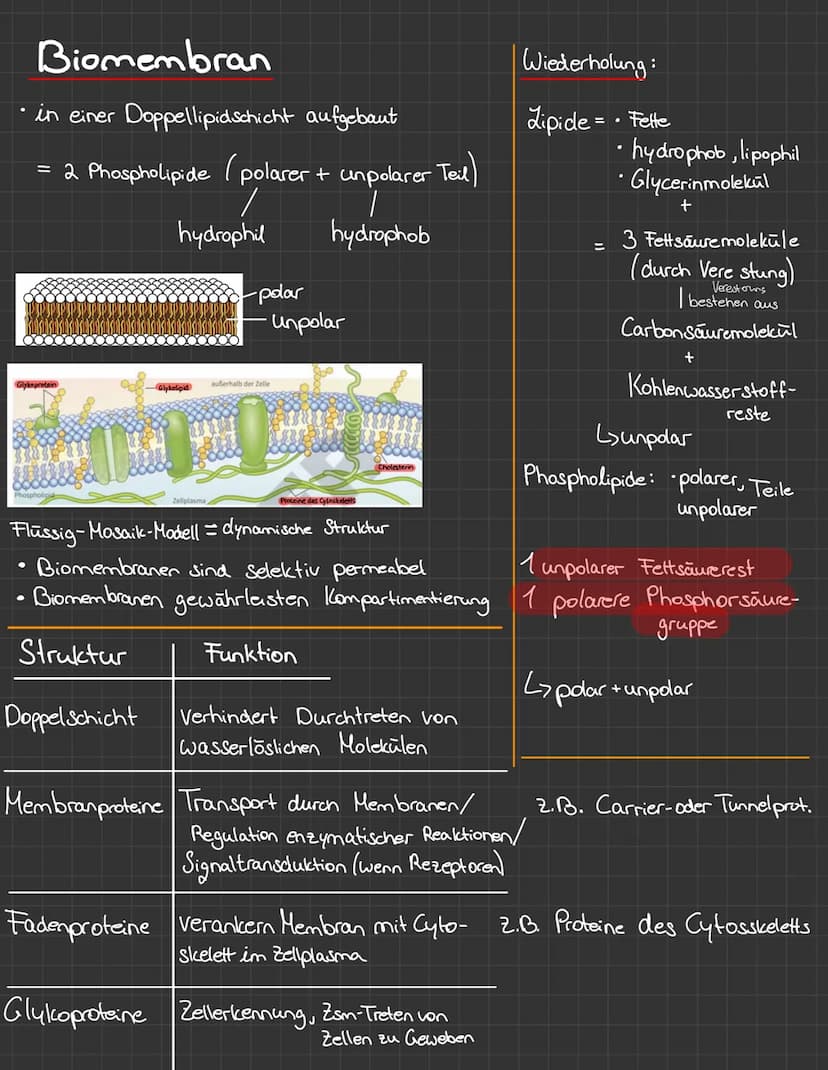 Biomembran
· in einer Doppellipidschicht aufgebaut
= 2 Phospholipide (polarer + unpolarer Teil)
hydrophil hydrophob
polar
unpolar
Glykoprotein
Glykolipid
außerhalb der Zelle
Cholesterin
Phospholipid
Zellplasma
Proteine des Cytoskeletts
Flüssig-Mosaik-Modell = dynamische Struktur
· Biomembranen sind selektiv permeabel
· Biomembranen gewährleisten Kompartimentierung
Struktur Funktion
Doppelschicht verhindert Durchtreten von
wasserlöslichen Molekülen
Membranproteine Transport durch Membranen/
Regulation enzymatischer Reaktionen/
Signaltransduktion (wenn Rezeptoren)
z.B. Carrier- oder Tunnelprot.
Fadenproteine verankern Membran mit Cyto-
skelett im Zellplasma
z.B. Proteine des Cytosskeletts
Glykoproteine Zellerkennung, Zsm-Treten von
Zellen zu Geweben
Wiederholung:
Lipide = · Fette
· hydrophob, lipophil
· Glycerinmolekül
+
= 3 Fettsäuremoleküle
(durch Vere stung)
bestehen aus
Carbonsäuremolekül
+
Kohlenwasserstoff-
reste
↳ unpolar
Phospholipide: · polarer, Teile
unpolarer
1 unpolarer Fettsäurerest
1 polarere Phosphorsäure-
gruppe
↳ polar + unpolar